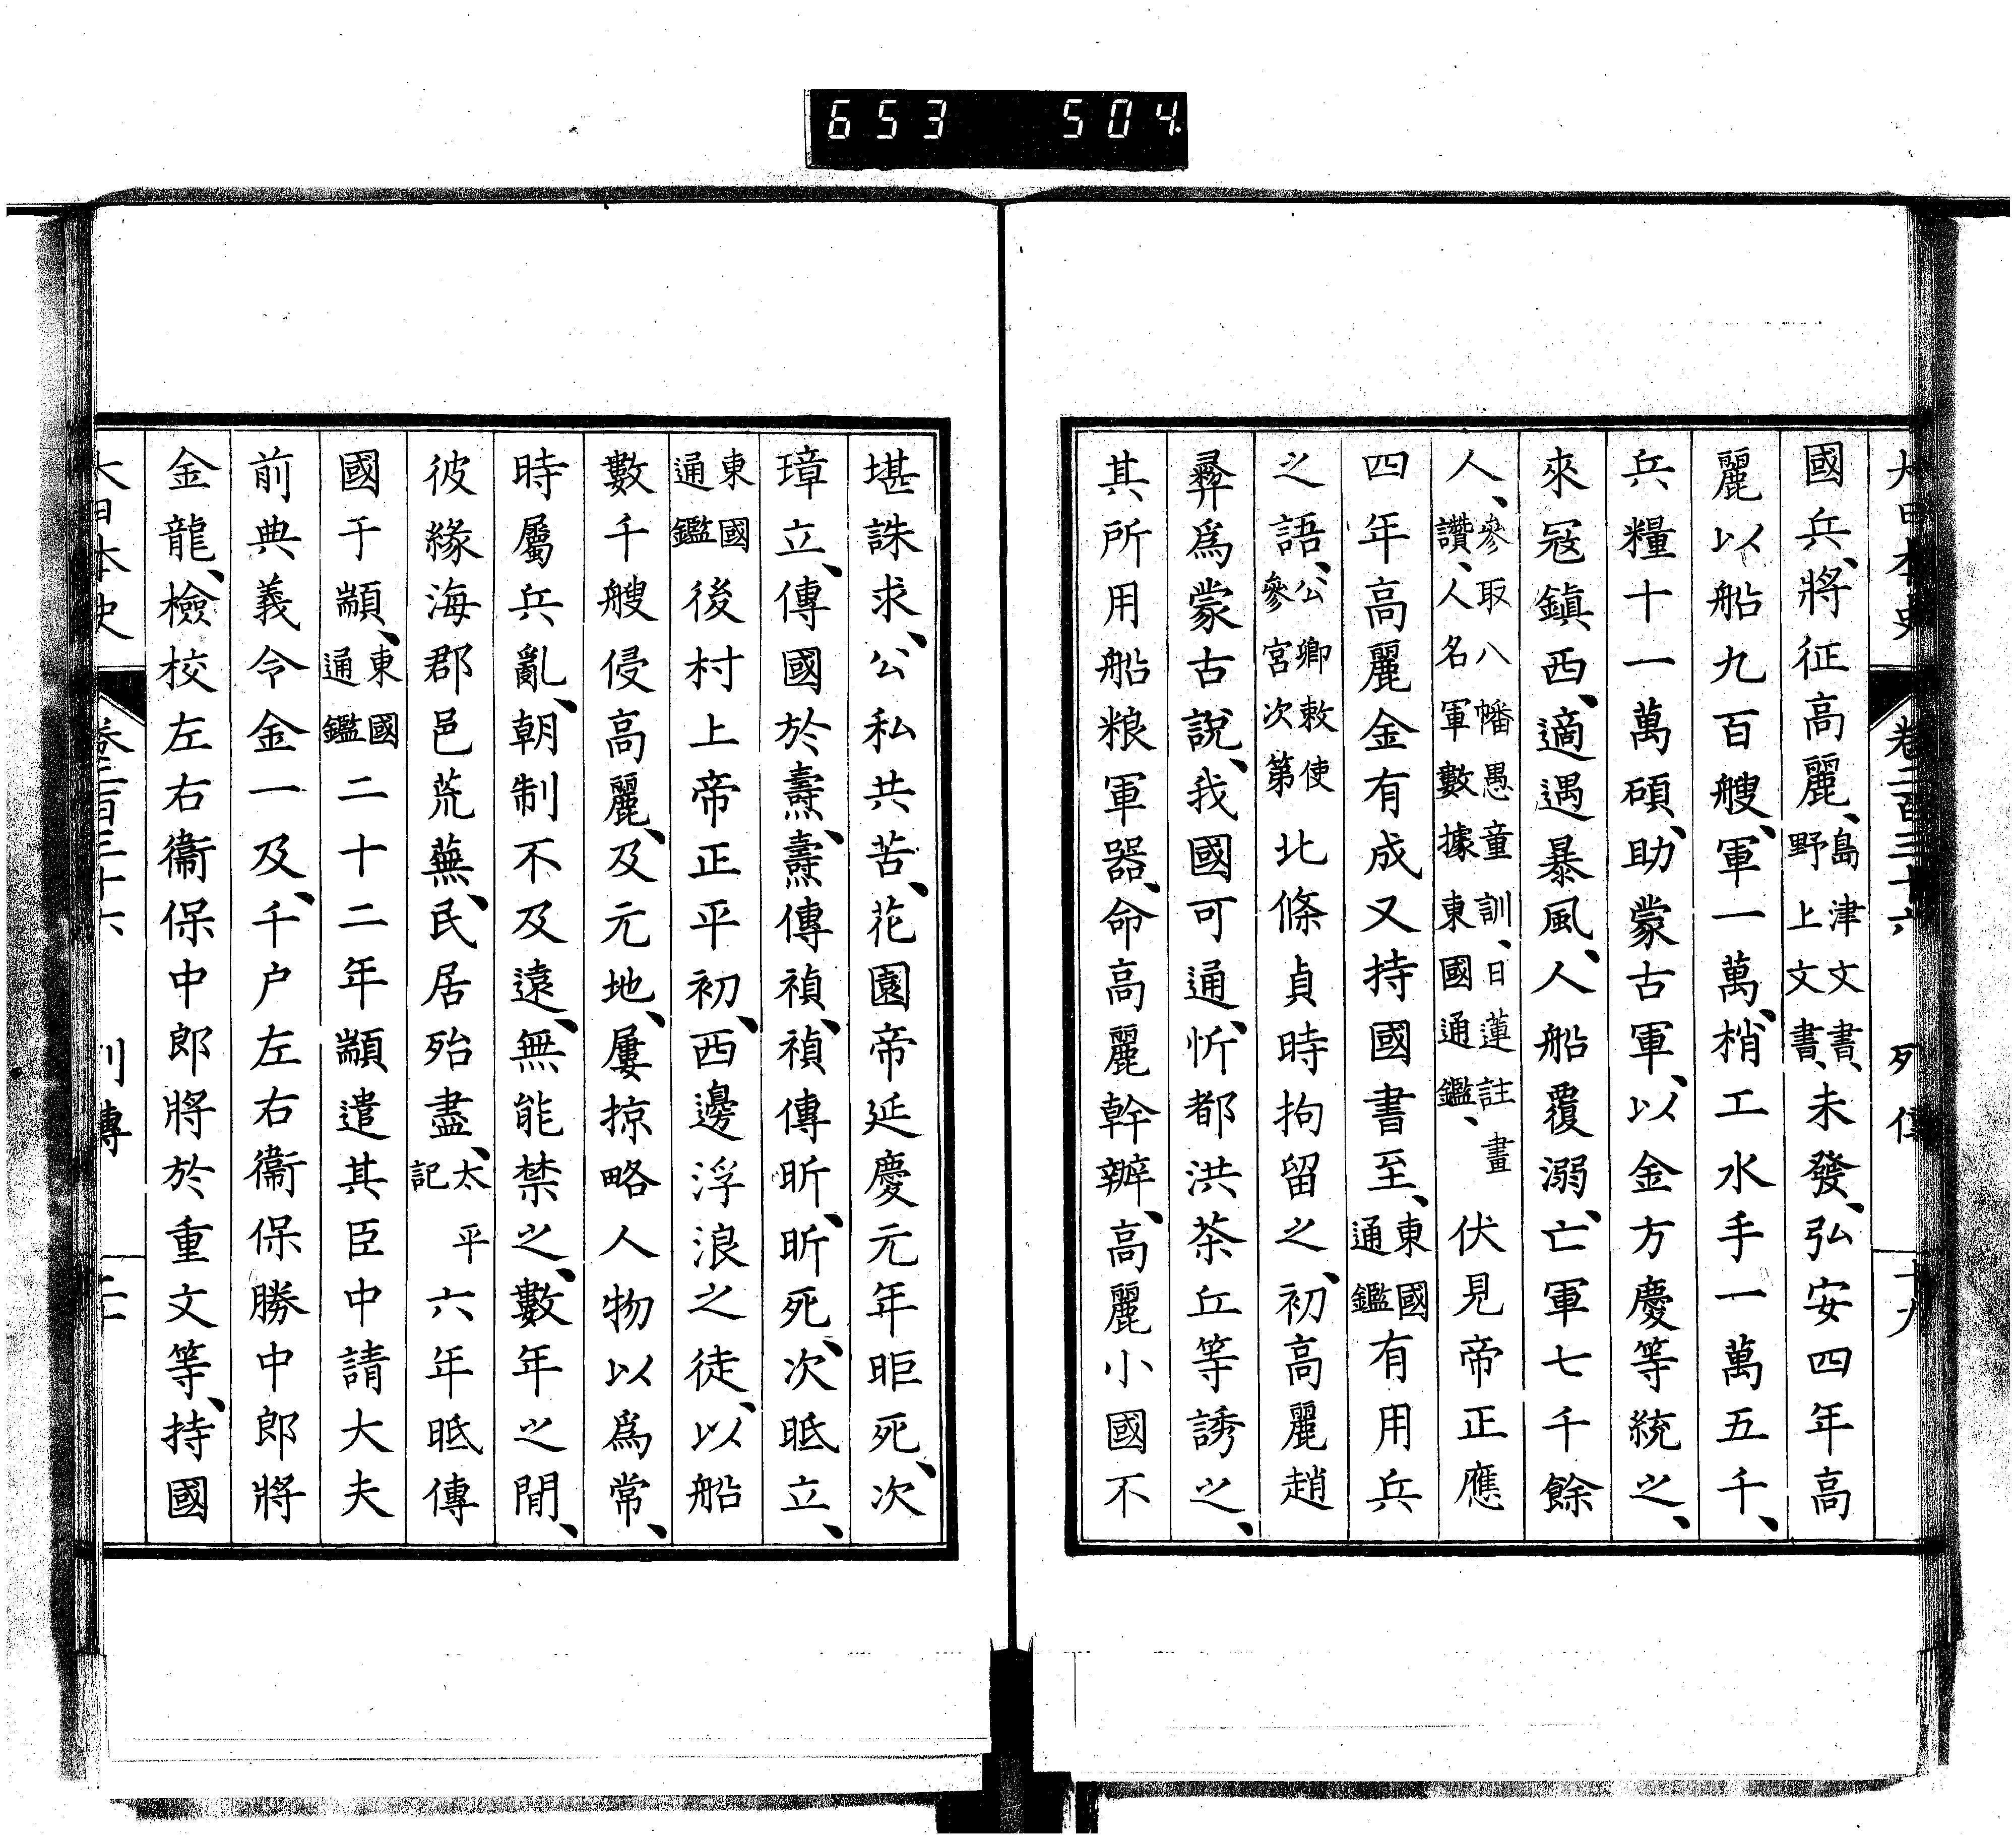 653 504.
大日本史 卷二百三十六 列傳 十九
國兵、將征高麗、島津文書、野上文書、未發、弘安四年高
麗以船九百艘、軍一萬、梢工水手一萬五千、
兵糧十一萬碩、助蒙古軍、以金方慶等統之、
來寇鎮西、適遇暴風、人船覆溺、亡軍七千餘
人、參取八幡愚童訓、日蓮註畫讚、人名軍數據東國通鑑、伏見帝正應
四年高麗金有成又持國書至、東國通鑑有用兵
之語、公卿敕使參宮次第北條貞時拘留之、初高麗趙
彝爲蒙古說、我國可通、忻都洪茶丘等誘之、
其所用船粮軍器、命高麗幹辦、高麗小國不
堪誅求、公私共苦、花園帝延慶元年昛死、次
璋立、傳國於燾、燾傳禎、禎傳昕、昕死、次眡立、
東國通鑑後村上帝正平初、西邊浮浪之徒、以船
數千艘侵高麗、及元地、屢掠略人物以爲常、
時屬兵亂、朝制不及遠、無能禁之、數年之閒、
彼緣海郡邑荒蕪、民居殆盡、太平記六年眡傳
國于顓、東國通鑑二十二年顓遣其臣中請大夫
前典義令金一及、千户左右衞保勝中郎將
金龍、檢校左右衞保中郎將於重文等、持國
大日本史 卷二百三十六 列傳 二十